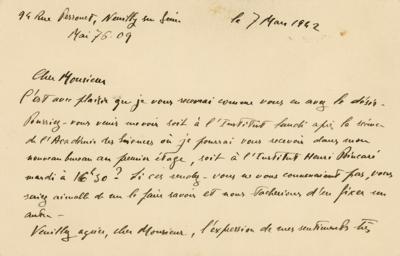 94 Rue Perronet, Neuilly sur Seine
le 7 Mars 1942
Mai 76.09
Cher Monsieur
C'est avec plaisir que je vous recevrai comme vous en avez le désir.
Pourriez-vous venir me voir soit à l'Institut lundi après la séance
de l'Académie des Sciences où je pourrai vous recevoir dans mon
nouveau bureau au premier étage, soit à l'Institut Henri Poincaré
mardi à 16h30? Si ces rendez-vous ne vous convenaient pas, vous
seriez aimable de me le faire savoir et nous tacherions d'en fixer un
autre.
Veuillez agréer, cher Monsieur, l'expression de mes sentiments très